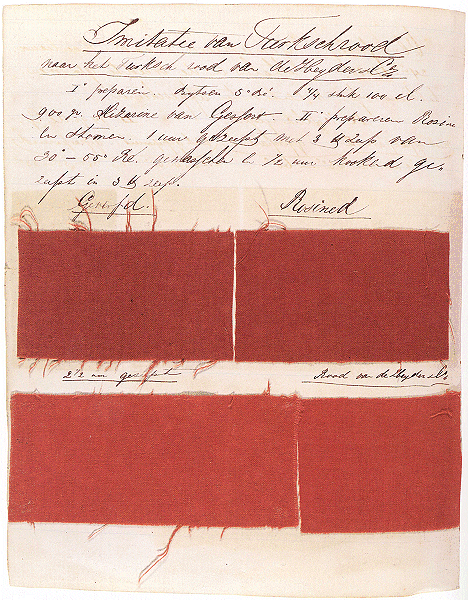 Imitatie van Turkschrood
naar het Turksch rood van de Heyder & Co
I° prepareren. 5° Bé. 1/4 stuk 100 el.
900 gr. Alizarine van II° prepareren Rosine
en Stoomen. 1 uur gezeept met 3 ℔ Zeep van
30° – 55° Ré. gewasschen & 1/2 uur kookend ge-
zeept in 3 ℔ zeep.
Geverfd. Rosined
2 1/2 uur gezeept Rood van de Heyder & Co